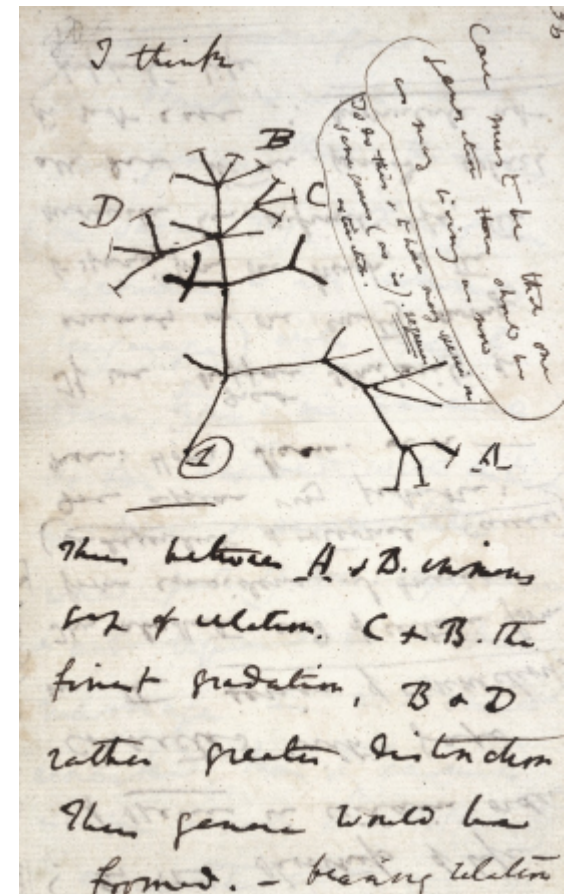 36
I think
Case must be that one
generation then should be
as many living as now
To do this & to have many species in
same genus (as is), requires
extinction.
B
C
D
A
1
Thus between A & B. immens
gap of relation. C & B. the
finest gradation, B & D
rather greater distinction
Thus genera would be
formed. – bearing relation